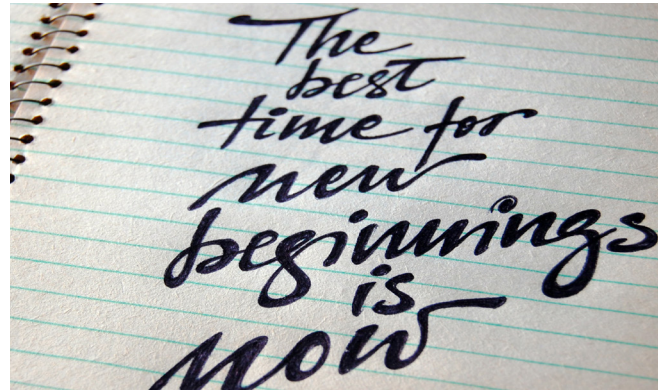 The
best
time for
new
beginnings
is
now